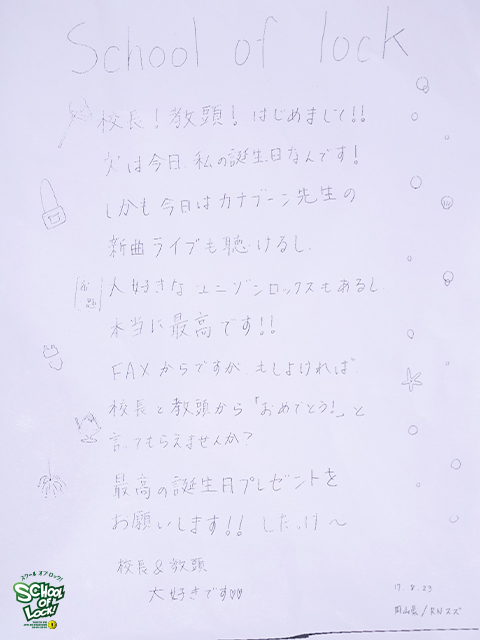 School of lock
校長！教頭！はじめまして!!
実は今日、私の誕生日なんです！
しかも今日はカナブーン先生の
新曲ライブも聴けるし、
大好きなユニゾンロックスもあるし
本当に最高です!!
FAXからですが もしよければ
校長と教頭から「おめでとう!」と
言ってもらえませんか？
最高の誕生日プレゼントを
お願いします!! したっけ〜
校長&教頭
大好きです♡♡
17.8.23
岡山県/RNスズ
スクール オブ ロック!
SCHOOL OF LOCK!